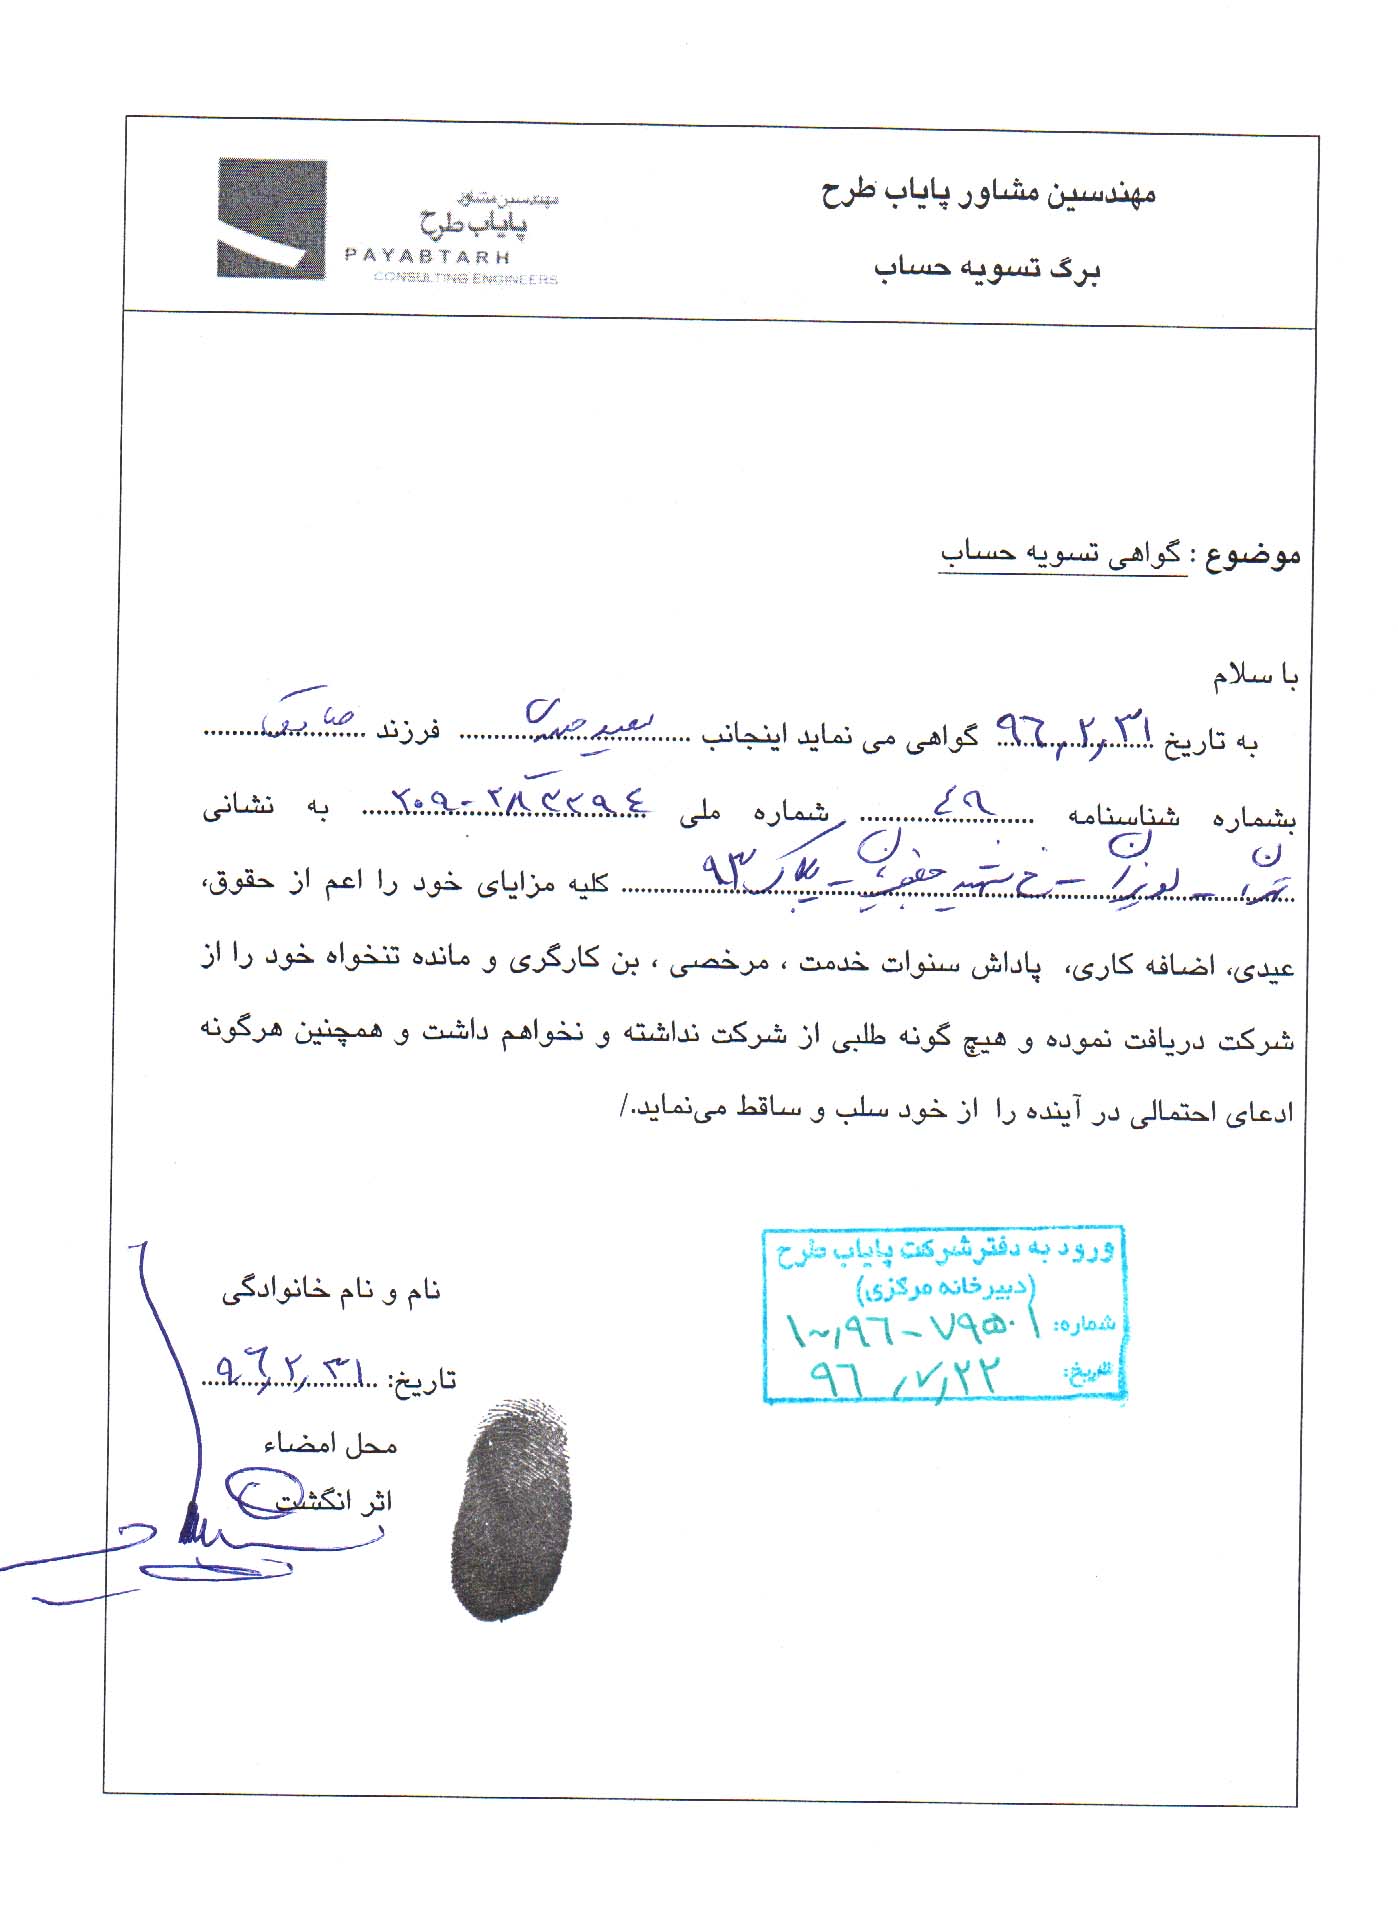 مهندسین مشاور پایاب طرح
برگ تسویه حساب
مهندسین مشاور
پایاب طرح
PAYABTARH
CONSULTING ENGINEERS
موضوع : گواهی تسویه حساب
با سلام
به تاریخ ۹۶,۲,۳۱ گواهی می نماید اینجانب سعید فرزند
بشماره شناسنامه ۴۹ شماره ملی به نشانی
تهران - - خ شهید - پلاک ۹۳ کلیه مزایای خود را اعم از حقوق،
عیدی، اضافه کاری، پاداش سنوات خدمت ، مرخصی ، بن کارگری و مانده تنخواه خود را از
شرکت دریافت نموده و هیچ گونه طلبی از شرکت نداشته و نخواهم داشت و همچنین هرگونه
ادعای احتمالی در آینده را از خود سلب و ساقط می‌نماید./
ورود به دفتر شرکت پایاب طرح
(دبیرخانه مرکزی)
شماره:
تاریخ: ۹۶,۷,۲۲
نام و نام خانوادگی
تاریخ: ۹۶,۲,۳۱
محل امضاء
اثر انگشت